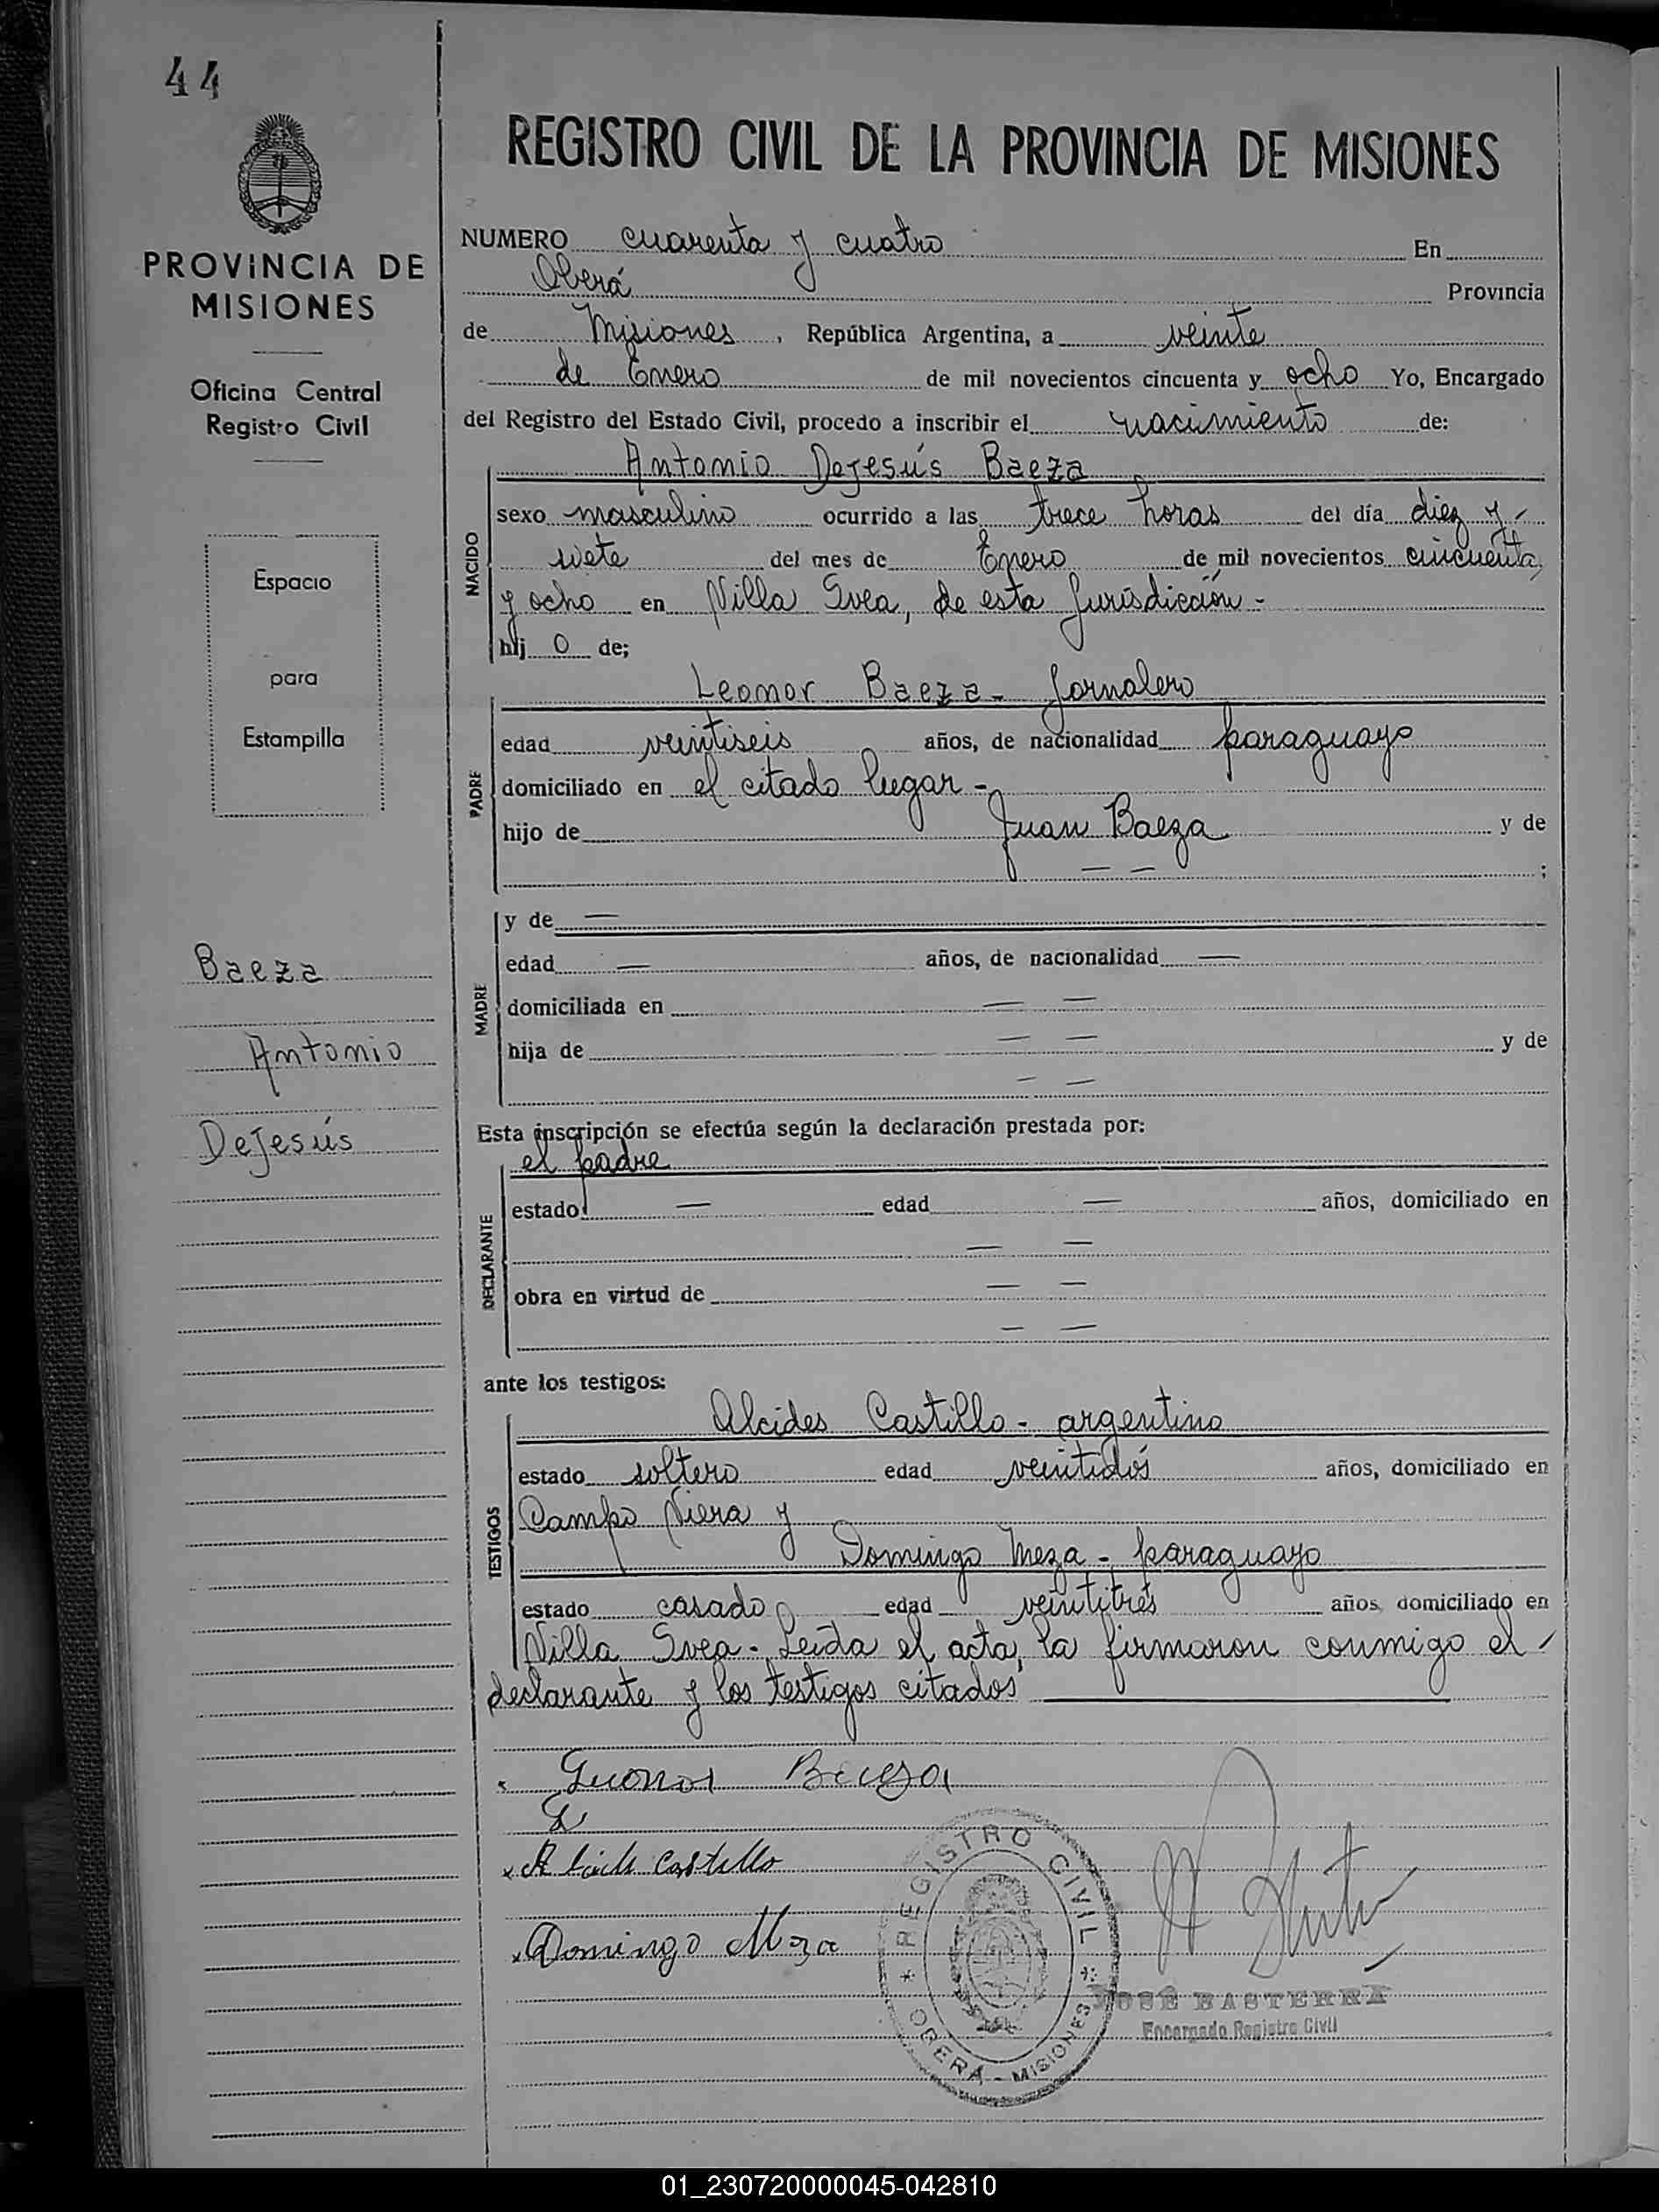 44
REGISTRO CIVIL DE LA PROVINCIA DE MISIONES
PROVINCIA DE
MISIONES
Oficina Central
Registro Civil
Espacio
para
Estampilla
Baeza
Antonio
DeJesús
NUMERO cuarenta y cuatro En
Oberá Provincia
de Misiones, República Argentina, a veinte
de Enero de mil novecientos cincuenta y ocho Yo, Encargado
del Registro del Estado Civil, procedo a inscribir el nacimiento de:
Antonio DeJesús Baeza
NACIDO
sexo masculino ocurrido a las trece horas del día diez y
siete del mes de Enero de mil novecientos cincuenta
y ocho en Villa Svea, de esta Jurisdicción -
hij o de;
Leonor Baeza - Jornalero
PADRE
edad veintiseis años, de nacionalidad paraguayo
domiciliado en el citado lugar -
hijo de Juan Baeza y de
— — ;
MADRE
y de —
edad — años, de nacionalidad —
domiciliada en — —
hija de — — y de
— —
Esta inscripción se efectúa según la declaración prestada por:
el padre
DECLARANTE
estado — edad — años, domiciliado en
— —
obra en virtud de — —
— —
ante los testigos:
Alcides Castillo - argentino
TESTIGOS
estado soltero edad veintidós años, domiciliado en
Campo Viera y
Domingo Meza - paraguayo
estado casado edad veintitrés años, domiciliado en
Villa Svea - Leída el acta, la firmaron conmigo el
declarante y los testigos citados
Leonor Baeza
Castillo
Domingo Meza
REGISTRO CIVIL
OBERÁ - MISIONES
JOSÉ BASTERRA
Encargado Registro Civil
01_230720000045-042810